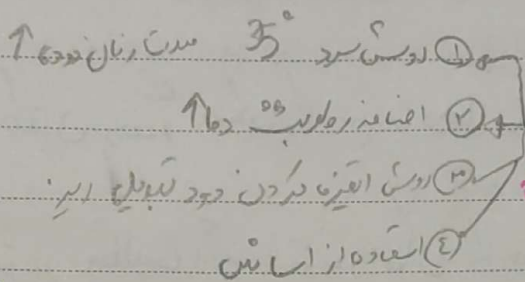 ① روش سرد 35° مدت زمان دوددهی ↑
② اضافه رطوبت 55 دما ↑
③ روش الکتریکی کردن دود تبدیل
④ استفاده از اسانس